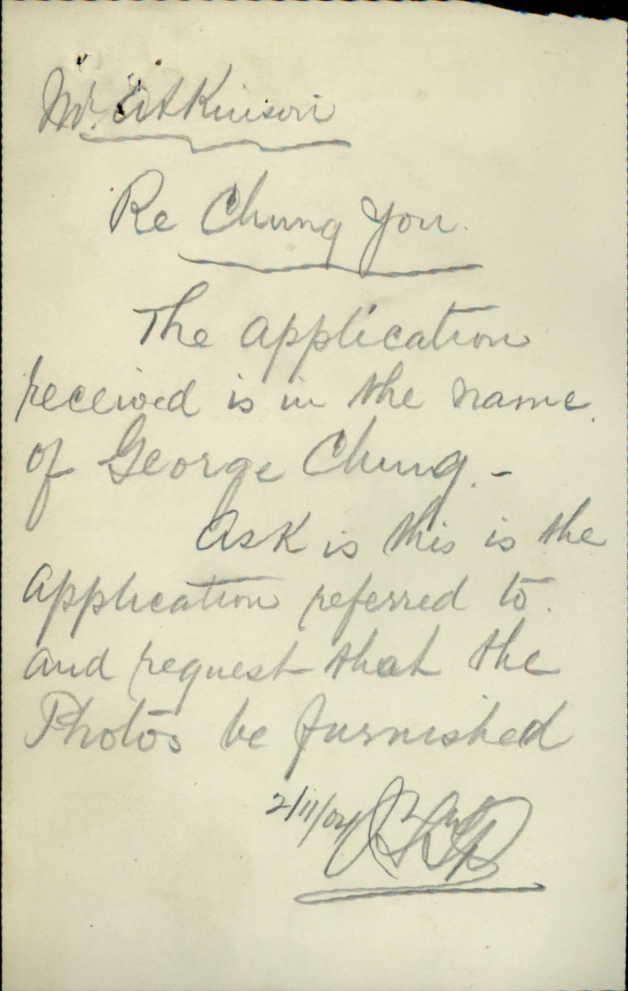 Mr. Atkinson
Re Chung You.
The application
received is in the name
of George Chung. -
Ask is this is the
application referred to.
and request that the
Photos be furnished
2/11/04